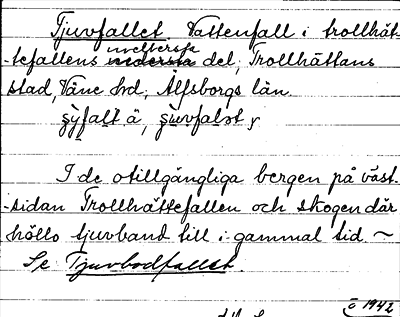 Tjuvfallet. Vattenfall i trollhät-
-tefallens mellersta nedersta del, Trollhättans
stad, Väne hd, Älfsborgs län.
I de otillgängliga bergen på väst-
-sidan Trollhättefallen och skogen där
höllo tjuvband till i gammal tid. ~
Se Tjuvbodfallet.
1942